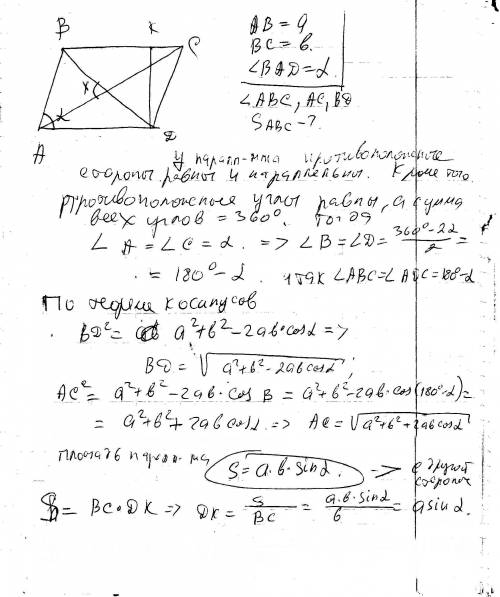 B K C
x
α
A D
AB = a
BC = b.
∠BAD = α.
∠ABC, AC, BD
S ABC - ?
У паралл-мма противоположные
стороны равны и параллельны. Кроме того
противоположные углы равны, а сумма
всех углов = 360°. Тогда
∠A = ∠C = α. => ∠B = ∠D = 360° - 2α / 2 =
= 180° - α. итак ∠ABC = ∠ADC = 180 - α
По теореме косинусов
BD² = a² + b² - 2ab·cosα =>
BD = √a² + b² - 2ab cosα ;
AC² = a² + b² - 2ab·cos B = a² + b² - 2ab·cos(180° - α) =
= a² + b² + 2ab cosα. => AC = √a² + b² + 2ab cosα
площадь парал-ма S = a·b·sinα. => с другой стороны
S = BC·DK => DK = S / BC = a·b·sinα / b = a sinα.